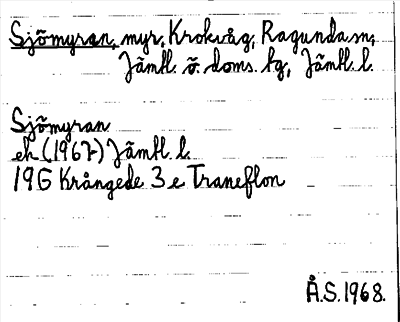 Sjömyran, myr, Krokvåg, Ragunda sn,
Jämtl. ö. doms. tg, Jämtl. l.
Sjömyran
ek (1967) Jämtl. l.
19G Krångede 3e Traneflon
Å.S. 1968.